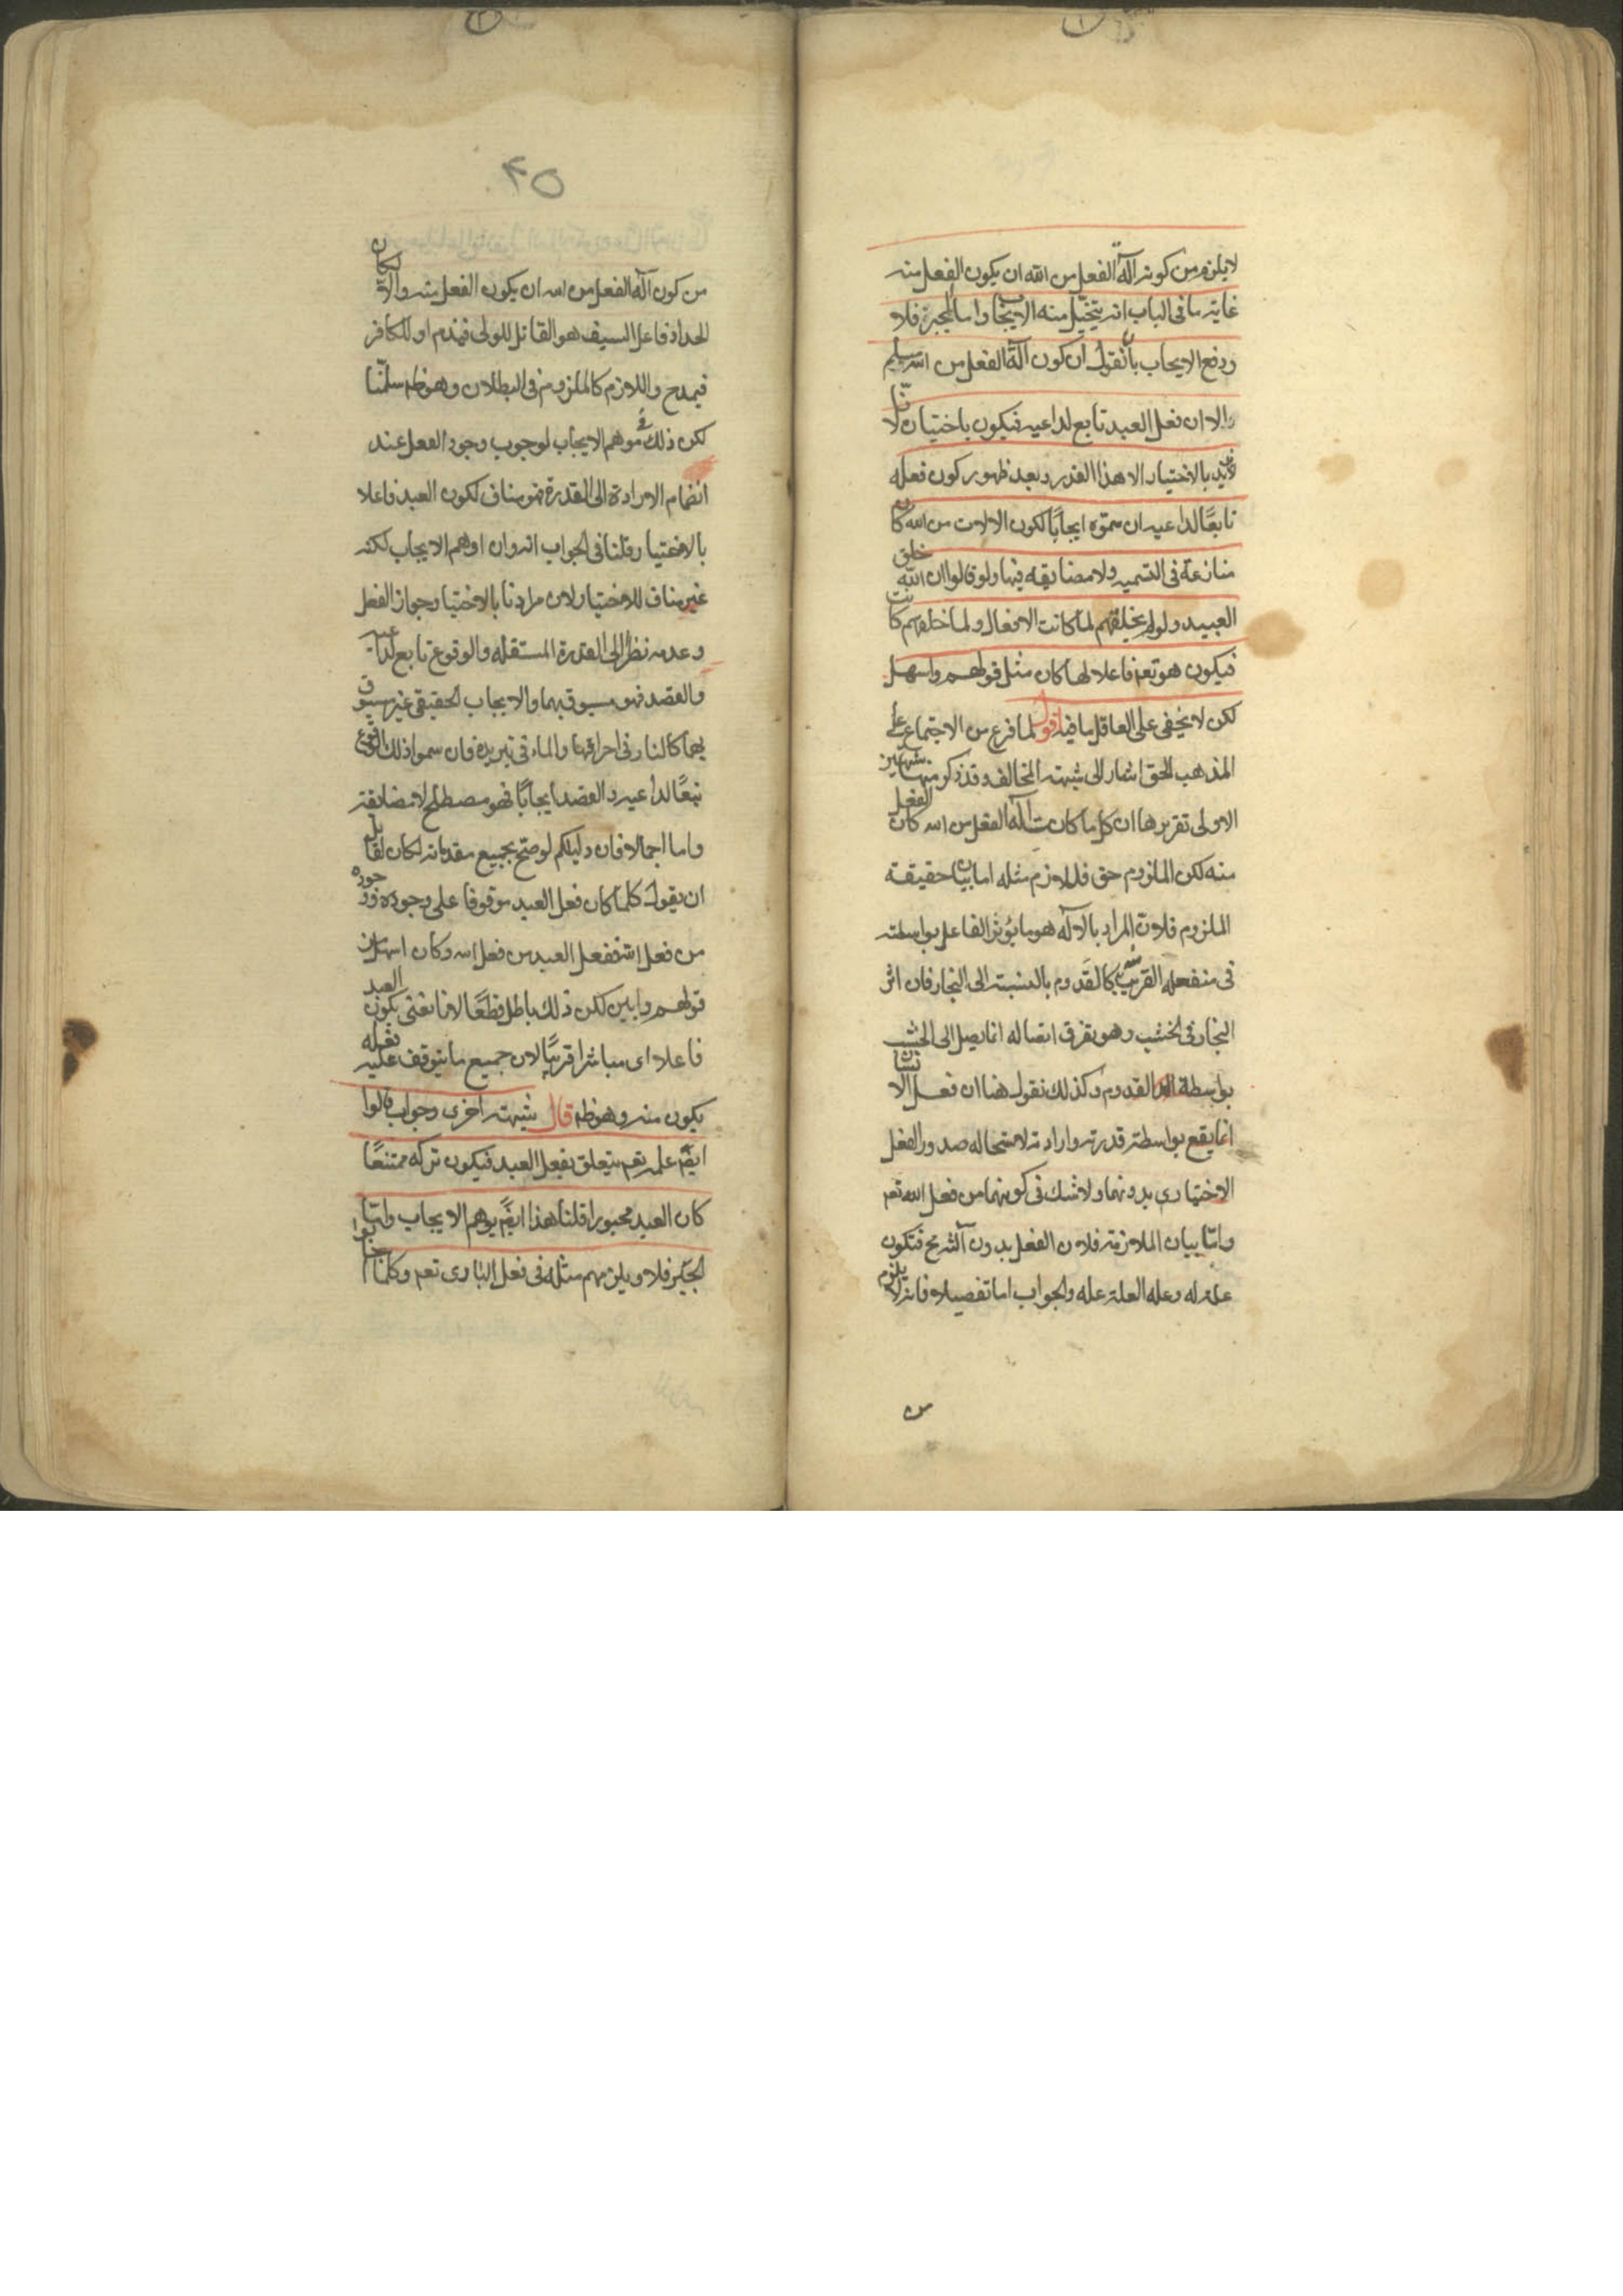 لا يلزم من كونه آلة الفعل من الله ان يكون الفعل منه
غاية ما فى الباب انه يتخيل منه الايجاب واما الجبر فلا
ودفع الايجاب بان نقول ان كون آلة الفعل من الله مسلم
والا ان فعل العبد تابع لداعيه فيكون باختياره لانا
لا نريد بالاختيار الا هذا القدر وبعد ظهور كون فعله
تابعًا لداعيه ان سموه ايجابًا لكون الالات من الله كا
منازعة فى التسمية ولا مضايقة فيها ولو قالوا ان الله خلق
العبيد ولو لم يخلقهم لما كانت الافعال ولما خلقهم كانت
فيكون هو تعه فاعلا لها كان مثل قولهم واسهل
لكن لا يخفى على العاقل ما فيه اقول لما فرغ من الاحتجاج على
المذهب الحق اشار الى شبهة المخالف وقد ذكر منها شبهتين
الاولى تقريرها ان كل ما كانت آلة الفعل من الله كان الفعل
منه لكن الملزوم حق فاللازم مثله اما بيان حقيقة
الملزوم فلان المراد بالآلة هو ما يؤثر الفاعل بواسطته
فى منفعله القريب منه كالقدوم بالنسبة الى النجار فان اثر
النجار فى الخشب وهو تفرق اتصاله انما يصل الى الخشب
بواسطة القدوم وكذلك نقول هنا ان فعل الانسان
انما يقع بواسطة قدرته وارادته لاستحاله صدور الفعل
الاختيارى بدونهما ولا شك فى كونهما من فعل الله تعه
واما بيان الملازمة فلان الفعل بدون آلته مح فتكون
علة له وعله العلة عله والجواب اما تفصيلا فانه لا يلزم
من
٤٥
من كون آلة الفعل من الله ان يكون الفعل منه والا لكان
الحداد فاعل السيف هو القاتل للولى فيذم او للكافر
فيمدح واللازم كالملزوم فى البطلان وهو ظه سلمنا
لكن ذلك موهم الايجاب لوجوب وجود الفعل عند
انضمام الارادة الى القدرة فهو مناف لكون العبد فاعلا
بالاختيار وقلنا فى الجواب انه وان اوهم الايجاب لكنه
غير مناف للاختيار لان مرادنا بالاختيار جواز الفعل
وعدمه نظرًا الى القدرة المستقله والوقوع تابع لداعيه
والقصد فهو مسبوق بهما والايجاب الحقيقى غير مسبوق
بهما كالنار فى احراقها والماء فى تبريده فان سموا ذلك الوقوع
تبعًا لداعيه والقصد ايجابًا فهو مصطلح لا مضايقة
واما اجمالا فان دليلكم لو صح بجميع مقدماته لكان لقائل
ان يقول كلما كان فعل العبد موقوفا على وجوده ووجوده
من فعل الله ففعل العبد من فعل الله وكان اسهل من
قولهم وابين لكن ذلك باطل قطعًا لانا نعنى بكون العبد
فاعلا اى مباشرا قريبًا لا ان جميع ما يتوقف عليه فعله
يكون منه وهو ظه قال شبهة اخرى وجواب قالوا
ايضً علمه تعه يتعلق بفعل العبد فيكون تركه ممتنعًا
كان العبد مجبورا قلنا هذا ايضً يوهم الايجاب واما
الجبر فلا ويلزمهم مثله فى فعل البارى تعه وكلما اجابوا